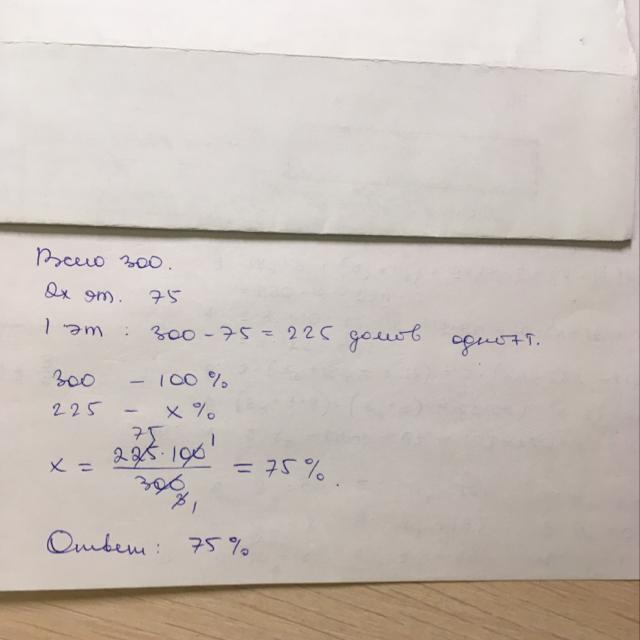 Всего 300.
2х эт. 75
1 эт : 300 - 75 = 225 домов одноэт.
300 - 100 %
225 - x %
x = 225 · 100 / 300 = 75 %.
75 1
3 1
Ответ: 75 %